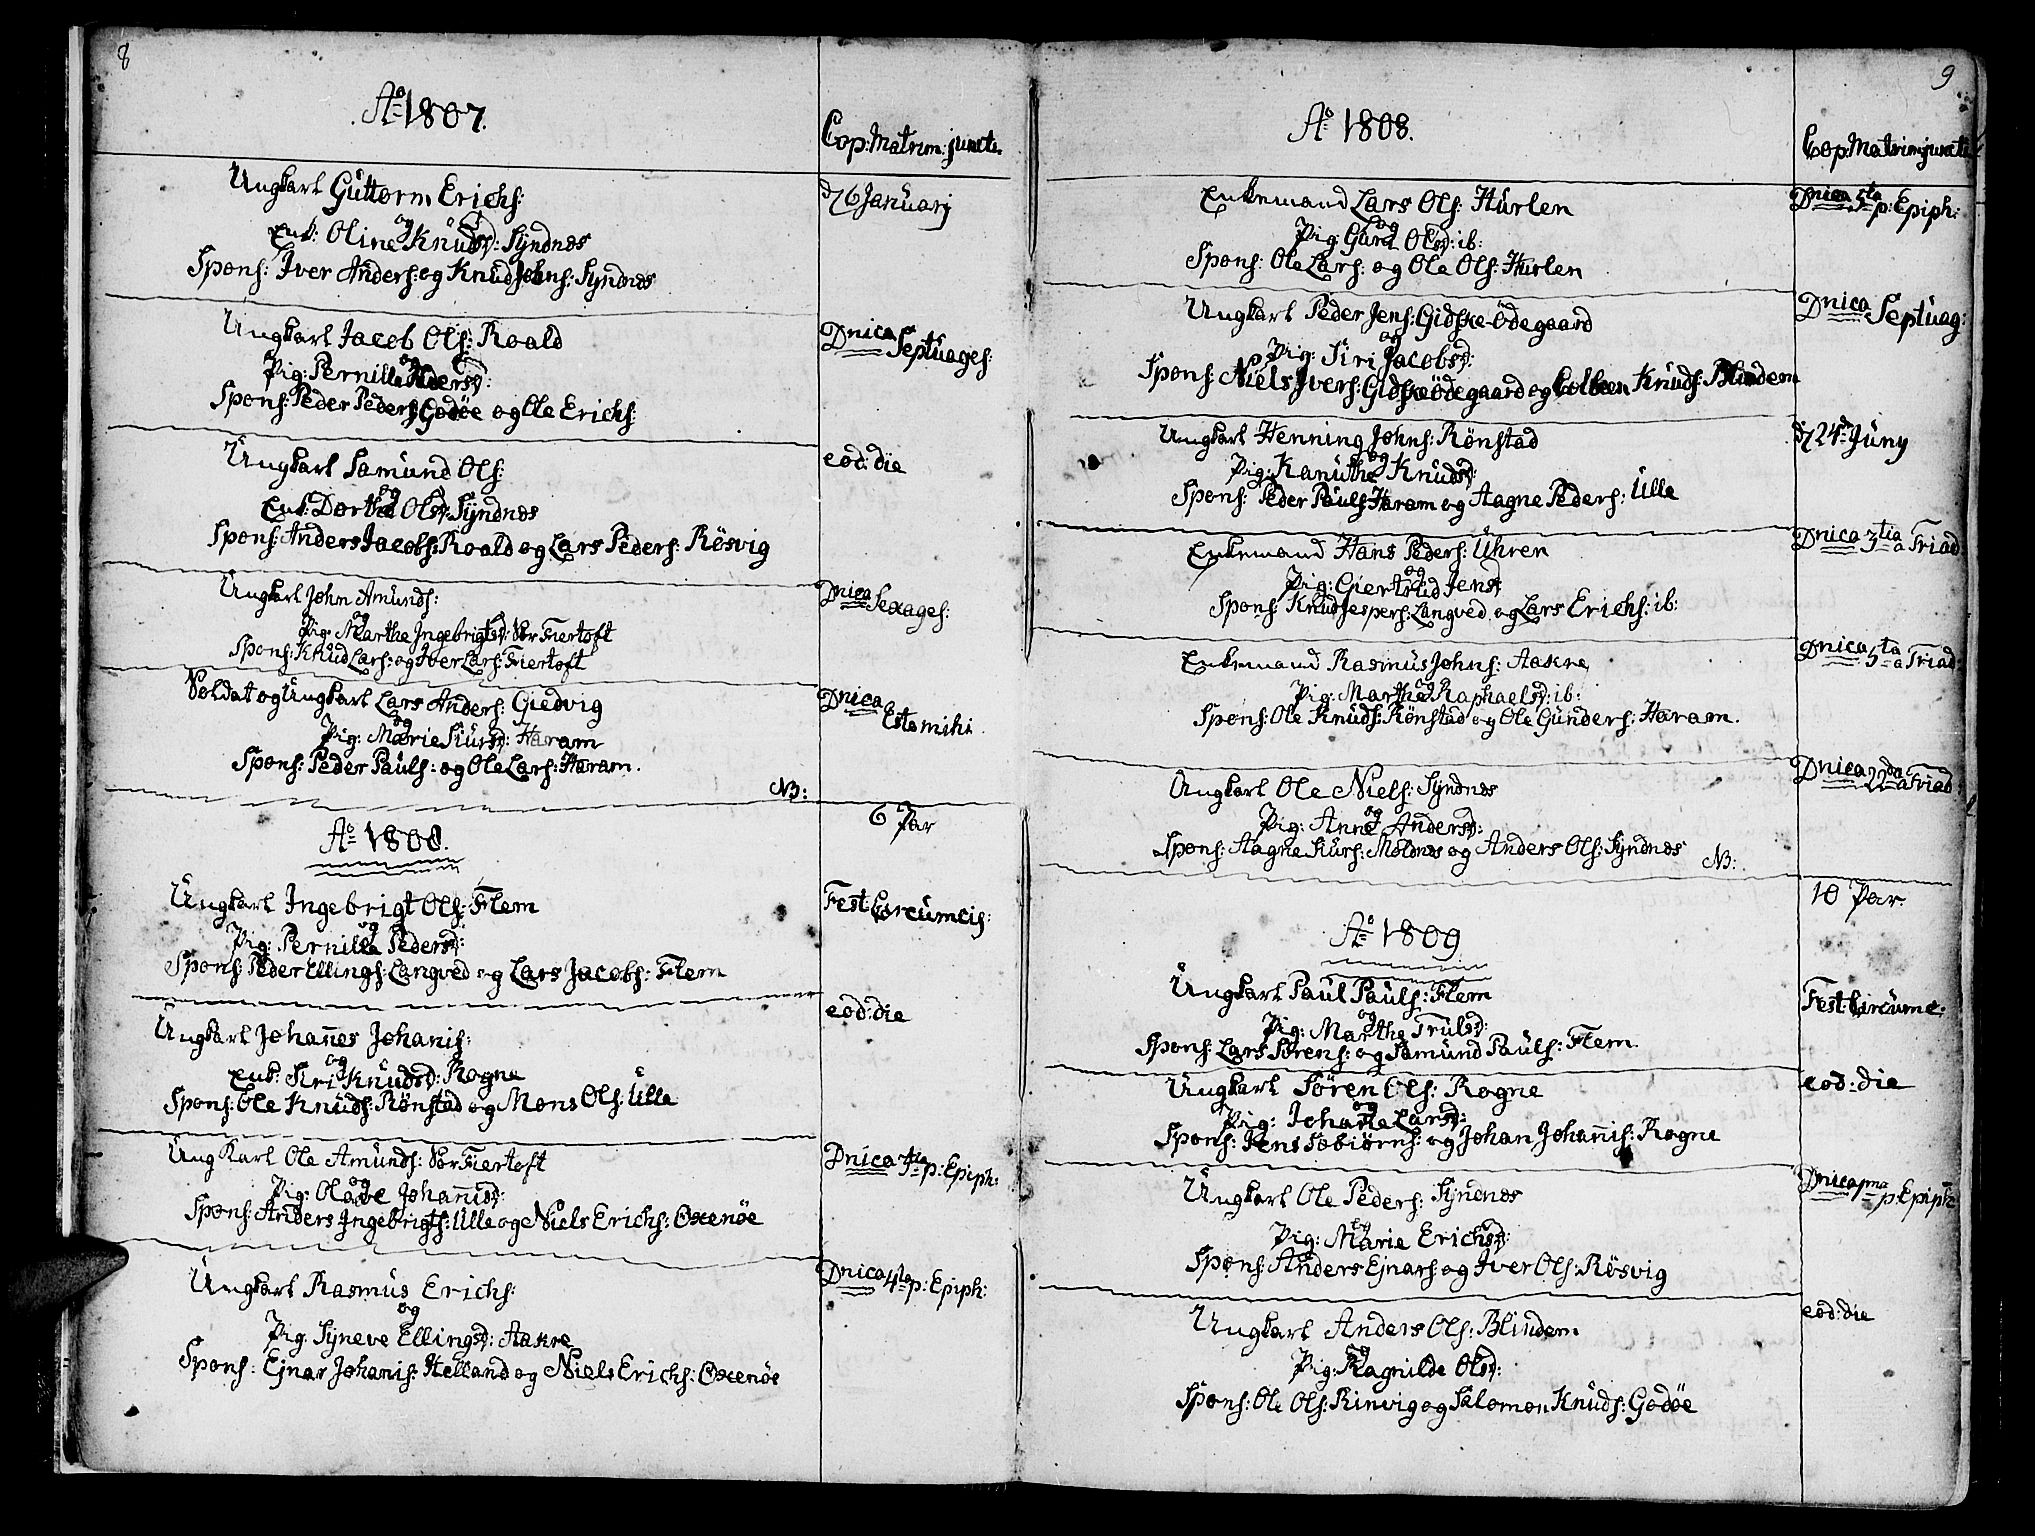 8
Aº 1807.
Cop: Matrim: juncti.
Ungkarl Guttorm Erichs:
d 6 Januarj
og
Enk: Oline Knudsd: Syndnes
Spons: Iver Anders: og Knud Johns: Syndnes
Ungkarl Jacob Ols: Roald
Dnica Septuages:
og
Pig: Pernille Pedersd:
Spons: Peder Peders: Godøe og Ole Erichs:
Ungkarl Samund Ols:
eod: die
og
Enk: Dorthe Olsd: Syndnes
Spons: Anders Jacobs: Roald og Lars Peders: Rösvig
Ungkarl John Amunds:
Dnica Sexages:
og
Pig: Marthe Ingebrigtsd: Nor Fiertoft
Spons: Knud Lars: og Iver Lars: Fiertoft
Soldat og Ungkarl Lars Anders: Giedvig
Dnica Estomihi
og
Pig: Marie Siursd: Haram
Spons: Peder Pauls: og Ole Lars: Haram.
NB:
6 Par
Aº 1808.
Ungkarl Ingebrigt Ols: Flem
Fest: Circumcis:
og
Pig: Pernille Pedersd:
Spons: Peder Ellings: Langved og Lars Jacobs: Flem
Ungkarl Johannes Johanis:
eod: die
og
Enk: Siri Knudsd: Rogne
Spons: Ole Knuds: Rönstad og Mons Ols: Ulle
Ungkarl Ole Amunds: Nor Fiertoft
Dnica 4ta p: Epiph:
og
Pig: Olave Johannisd:
Spons: Anders Ingebrigts: Ulle og Niels Erichs: Oxenöe
Ungkarl Rasmus Erichs:
Dnica 4ta p: Epiph:
og
Pig: Syneve Ellingsd: Aakre
Spons: Ejnar Johanis: Helland og Niels Erichs: Oxenöe
9
Aº 1808.
Cop: Matrim: juncti
Enkemand Lars Ols: Hurlen
Dnica 5ta p: Epiph:
og
Pig: Guri Olsd: ib:
Spons: Ole Lars: og Ole Ols: Hurlen
Ungkarl Peder Jens: Gidske-Ödegaard
Dnica Septuag:
og
Pig: Siri Jacobsd:
Spons: Niels Ivers: Gidskeödegaard og Colbeen Knuds: Blindem
Ungkarl Henning Johns: Rönstad
d 24de Juny
og
Pig: Kanuthe Knudsd:
Spons: Peder Pauls: Haram og Aagne Peders: Ulle
Enkemand Hans Peders: Uhren
Dnica 3tia a Triad
og
Pig: Giertrud Jensd
Spons: Knud Jespers: Langved og Lars Erichs: ib:
Enkemand Rasmus Johns: Aakre
Dnica 5ta a Triad:
og
Pig: Marthe Raphaelsd: ib:
Spons: Ole Knuds: Rönstad og Ole Gunders: Haram.
Ungkarl Ole Niels: Syndnes
Dnica 22da a Triad:
og
Pig: Anne Andersd:
Spons: Aagne Siurs: Moldnes og Anders Ols: Syndnes
NB:
10 Par.
Aº 1809
Ungkarl Paul Pauls: Flem
Fest: Circumc:
og
Pig: Marthe Trulsd:
Spons: Lars Sörens: og Samund Pauls: Flem.
Ungkarl Sören Ols: Rogne
eod: die
og
Pig: Johanne Larsd:
Spons: Jens Tobiörns: og Johan Johannis: Rogne
Ungkarl Ole Peders: Syndnes
Dnica 1ma p: Epiph:
og
Pig: Marie Erichsd:
Spons: Anders Ejnars: og Iver Ols: Rösvig
Ungkarl Anders Ols: Blindem
eod: die
og
Pig: Ragnilde Olsd:
Spons: Ole Ols: Rinvig og Salomon Knuds: Godöe